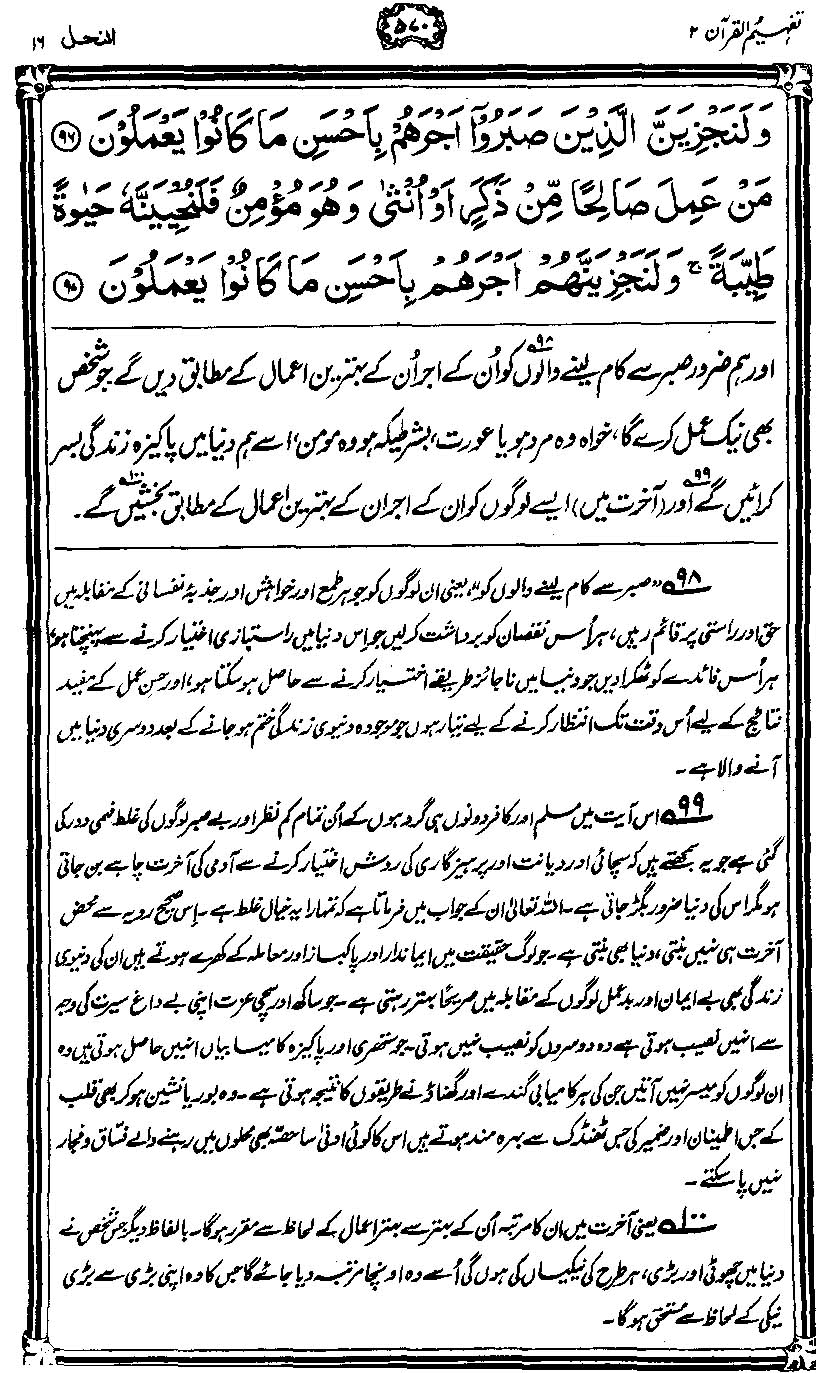 تفہیم القرآن ۲
۵۷۰
النحل ۱۶
وَلَنَجْزِيَنَّ الَّذِيْنَ صَبَرُوْٓا اَجْرَهُمْ بِاَحْسَنِ مَا كَانُوْا يَعْمَلُوْنَ ﴿۹۶﴾
مَنْ عَمِلَ صَالِحًا مِّنْ ذَكَرٍ اَوْ اُنْثٰى وَهُوَ مُؤْمِنٌ فَلَنُحْيِيَنَّهٗ حَيٰوةً
طَيِّبَةً ۚ وَلَنَجْزِيَنَّهُمْ اَجْرَهُمْ بِاَحْسَنِ مَا كَانُوْا يَعْمَلُوْنَ ﴿۹۷﴾
اور ہم ضرور صبر سے کام لینے والوں۹۸ کو اُن کے اجر اُن کے بہترین اعمال کے مطابق دیں گے جو شخص
بھی نیک عمل کرے گا، خواہ وہ مرد ہو یا عورت، بشرطیکہ ہو وہ مومن، اسے ہم دنیا میں پاکیزہ زندگی بسر
کرائیں گے۹۹ اور (آخرت میں) ایسے لوگوں کو ان کے اجر ان کے بہترین اعمال کے مطابق بخشیں گے۱۰۰۔
۹۸ "صبر سے کام لینے والوں کو"، یعنی ان لوگوں کو جو ہر طمع اور خواہش اور جذبۂ نفسانی کے مقابلہ میں
حق اور راستی پر قائم رہیں، ہر اُس نقصان کو برداشت کر لیں جو اس دنیا میں راستبازی اختیار کرنے سے پہنچتا ہو،
ہر اُس فائدے کو ٹھکرا دیں جو دنیا میں ناجائز طریقے اختیار کرنے سے حاصل ہو سکتا ہو، اور حسن عمل کے مفید
نتائج کے لیے اُس وقت تک انتظار کرنے کے لیے تیار ہوں جو موجودہ دنیوی زندگی ختم ہو جانے کے بعد دوسری دنیا میں
آنے والا ہے۔
۹۹ اس آیت میں مسلم اور کافر دونوں ہی گروہوں کے اُن تمام کم نظر اور بے صبر لوگوں کی غلط فہمی دور کی
گئی ہے جو یہ سمجھتے ہیں کہ سچائی اور دیانت اور پرہیزگاری کی روش اختیار کرنے سے آدمی کی آخرت چاہے بن جاتی
ہو مگر اس کی دنیا ضرور بگڑ جاتی ہے۔ اللہ تعالیٰ ان کے جواب میں فرماتا ہے کہ تمہارا یہ خیال غلط ہے۔ اِس صحیح رویہ سے محض
آخرت ہی نہیں بنتی، دنیا بھی بنتی ہے۔ جو لوگ حقیقت میں ایماندار اور پاکباز اور معاملہ کے کھرے ہوتے ہیں ان کی دنیوی
زندگی بھی بے ایمان اور بدعمل لوگوں کے مقابلہ میں صریحًا بہتر رہتی ہے۔ جو ساکھ اور سچی عزت اپنی بے داغ سیرت کی وجہ
سے انہیں نصیب ہوتی ہے وہ دوسروں کو نصیب نہیں ہوتی۔ جو ستھری اور پاکیزہ کامیابیاں انہیں حاصل ہوتی ہیں وہ
ان لوگوں کو میسر نہیں آتیں جن کی ہر کامیابی گندے اور گھناؤنے طریقوں کا نتیجہ ہوتی ہے۔ وہ بوریا نشین ہو کر بھی قلب
کے جس اطمینان اور ضمیر کی جس ٹھنڈک سے بہرہ مند ہوتے ہیں اس کا کوئی ادنیٰ سا حصہ بھی محلوں میں رہنے والے فساق و فجار
نہیں پا سکتے۔
۱۰۰ یعنی آخرت میں ان کا مرتبہ اُن کے بہتر سے بہتر اعمال کے لحاظ سے مقرر ہوگا۔ بالفاظ دیگر جس شخص نے
دنیا میں چھوٹی اور بڑی، ہر طرح کی نیکیاں کی ہوں گی اُسے وہ اونچا مرتبہ دیا جائے گا جس کا وہ اپنی بڑی سے بڑی
نیکی کے لحاظ سے مستحق ہوگا۔